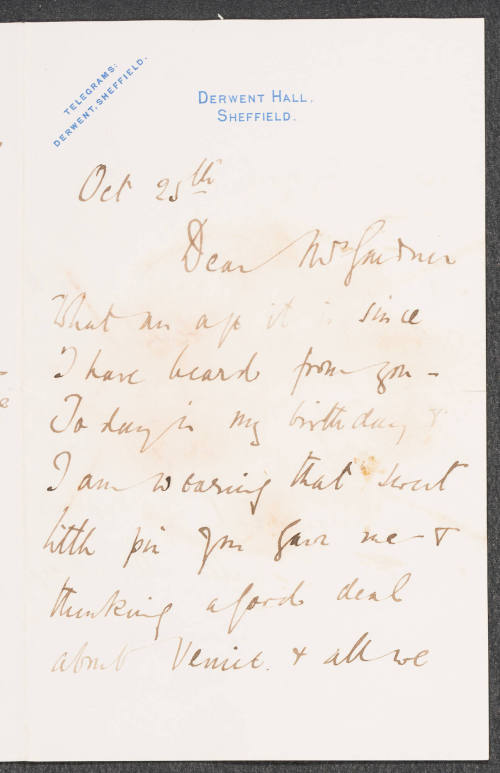 TELEGRAMS:
DERWENT, SHEFFIELD.
DERWENT HALL.
SHEFFIELD.
Oct 25th
Dear Mrs Gardner
What an age it is since
I have heard from you -
To day is my birthday &
I am wearing that sweet
little pin you gave me &
thinking a good deal
about Venice. & all we